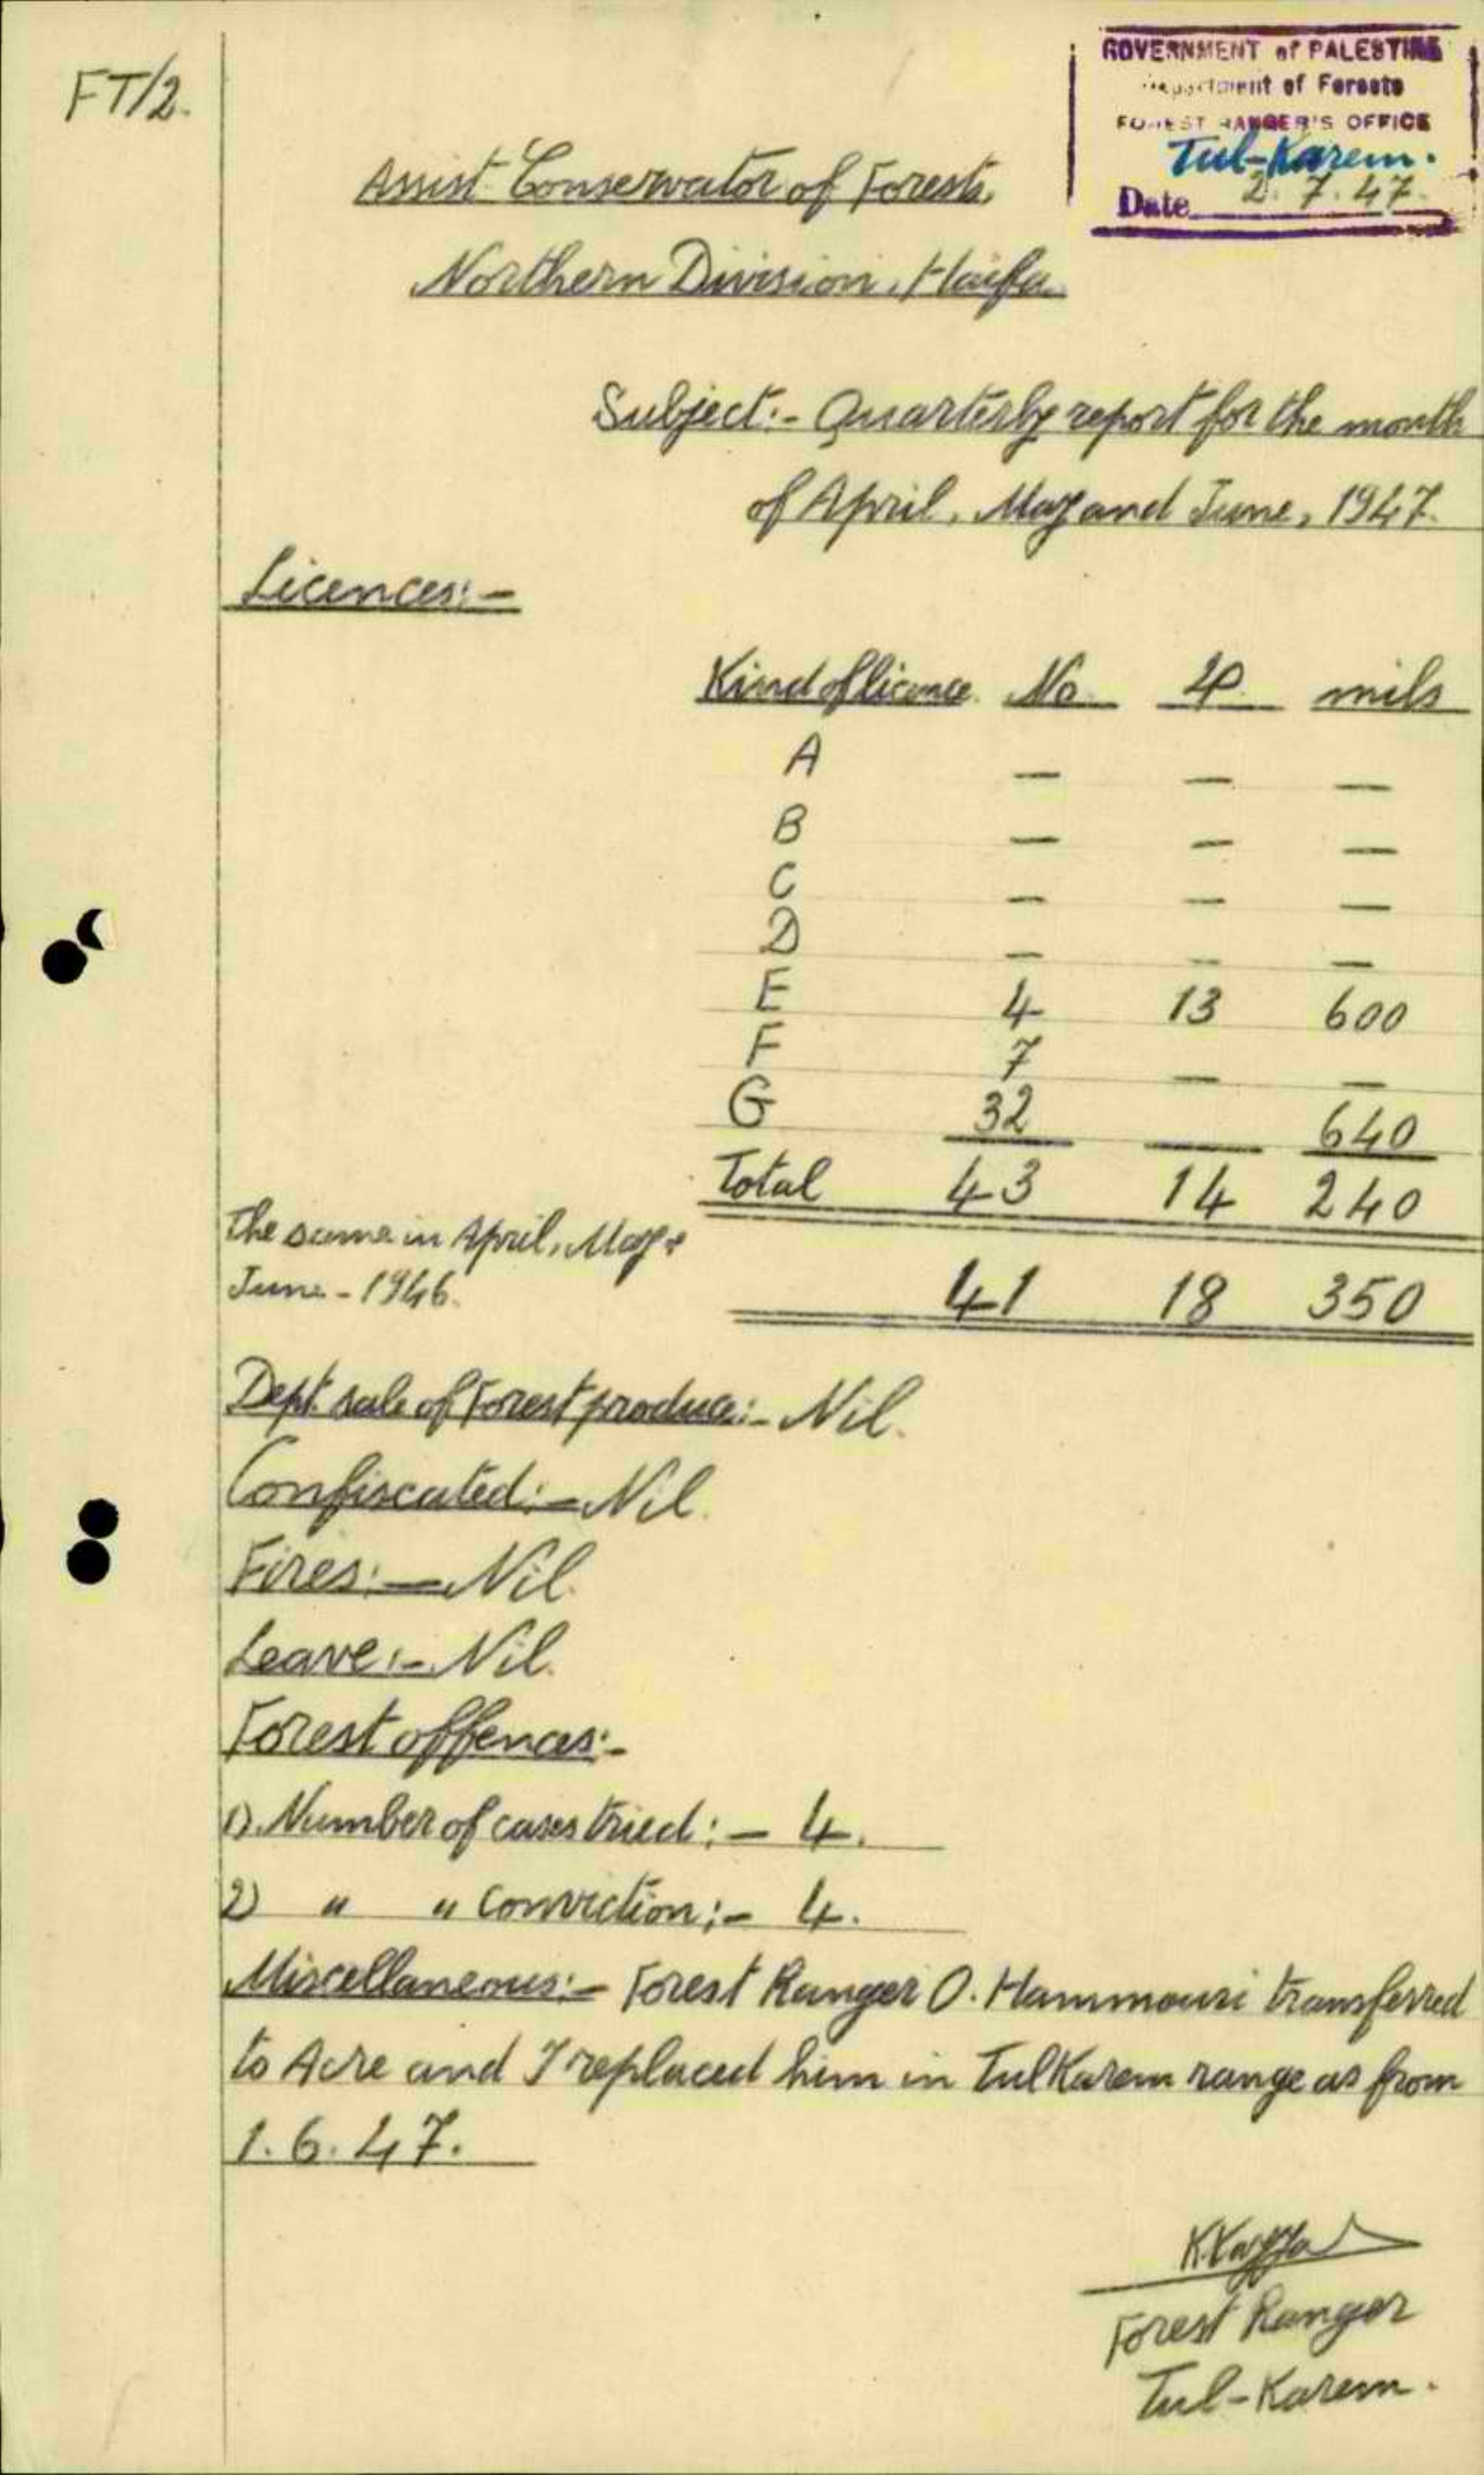 FT/2.
GOVERNMENT of PALESTINE
Department of Forests
FOREST RANGER'S OFFICE
Tul-Karem.
Date 2.7.47
Assist. Conservator of Forests,
Northern Division, Haifa
Subject:- Quarterly report for the month
of April, May and June, 1947.
Licences:-
Kind of licence No. £P. mils
A — — —
B — — —
C — — —
D — — —
E 4 13 600
F 7 — —
G 32 640
Total 43 14 240
The same in April, May &
June - 1946. 41 18 350
Dept. sale of Forest produce:- Nil.
Confiscated:- Nil.
Fires:- Nil.
Leave:- Nil.
Forest offences:-
1). Number of cases tried:- 4.
2) " " conviction:- 4.
Miscellaneous:- Forest Ranger O. Hammouri transferred
to Acre and I replaced him in Tul Karem range as from
1.6.47.
Forest Ranger
Tul-Karem.